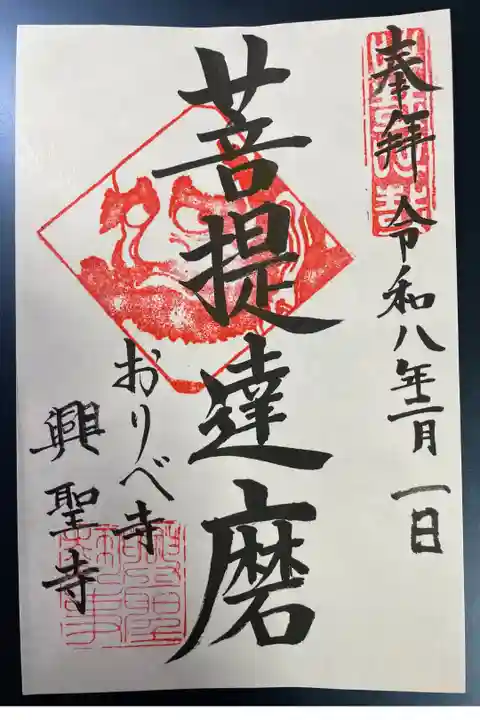 奉拝 令和八年二月一日
菩提達磨
おりべ寺
興聖寺